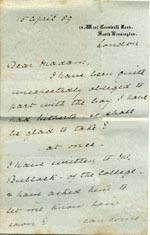 15 April 89
South Kensington.
London
Dear Madam,
I have been quite
unexpectedly obliged to
part with the boy I have
had hitherto, so shall
be glad to take
at once.
I have written to Mr.
Bullock of the College
& have asked him to
let me know how
soon can come